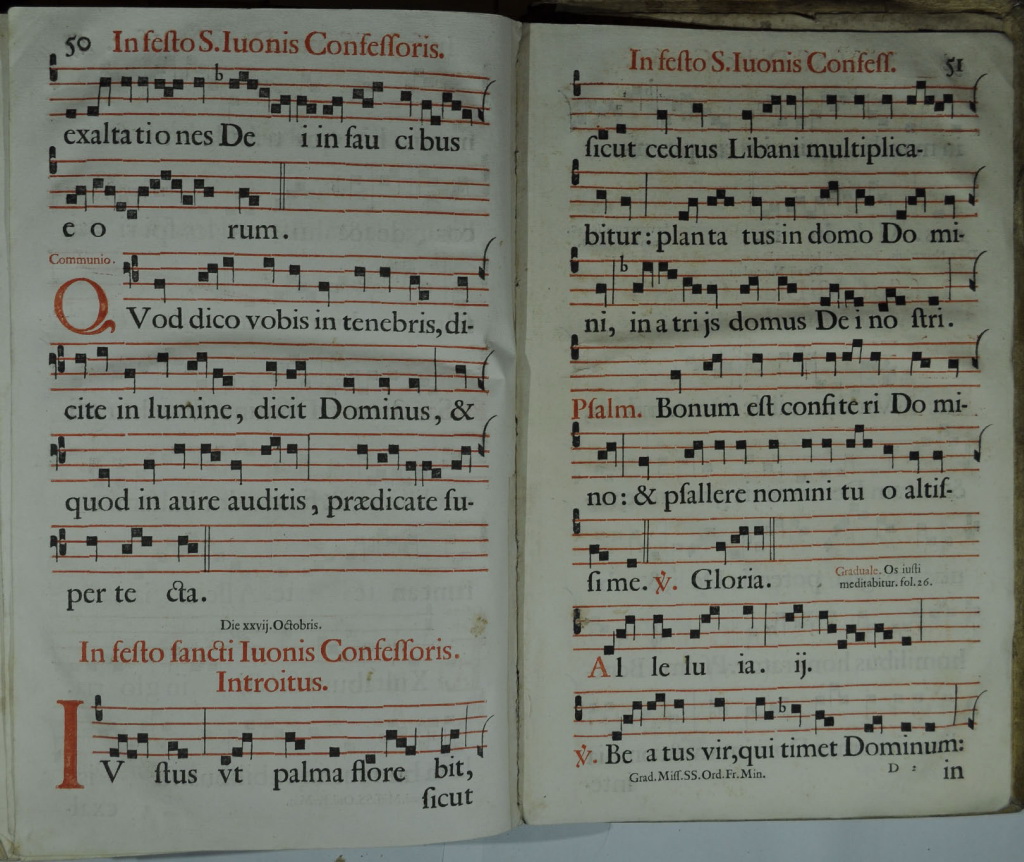 50 In festo S. Iuonis Confessoris.
exaltationes De i in fau cibus
e o rum.
Communio.
QVod dico vobis in tenebris, di-
cite in lumine, dicit Dominus, &
quod in aure auditis, prædicate su-
per te cta.
Die xxvij. Octobris.
In festo sancti Iuonis Confessoris.
Introitus.
IVstus vt palma flore bit,
sicut
In festo S. Iuonis Confess. 51
sicut cedrus Libani multiplica-
bitur: planta tus in domo Do mi-
ni, in a tri js domus De i no stri.
Psalm. Bonum est confite ri Do mi-
no: & psallere nomini tu o altis-
sime. ℣. Gloria. Graduale. Os iusti
meditabitur. fol. 26.
Al le lu ia. ij.
℣. Be a tus vir, qui timet Dominum:
Grad. Miss. SS. Ord. Fr. Min. D 2 in